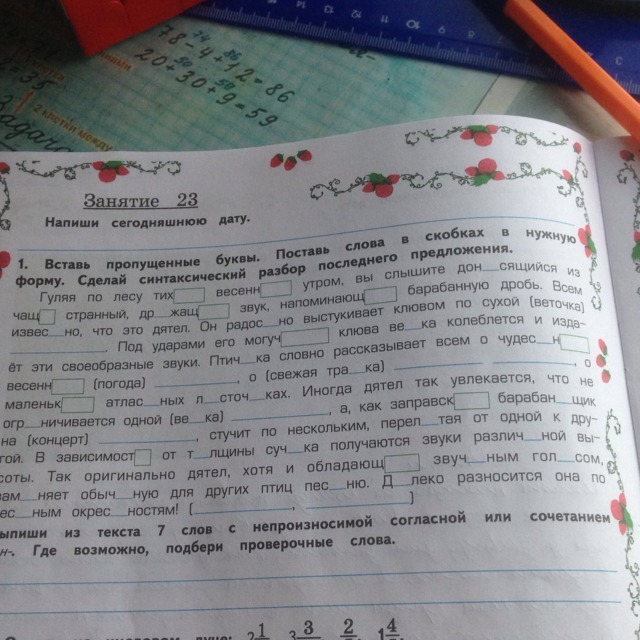 78-4+12=86
20+30+9=59
35
Занятие 23
Напиши сегодняшнюю дату.
1. Вставь пропущенные буквы. Поставь слова в скобках в нужную
форму. Сделай синтаксический разбор последнего предложения.
Гуляя по лесу тих□ весенн□ утром, вы слышите дон__сящийся из
чащ□ странный, др__жащ□ звук, напоминающ□ барабанную дробь. Всем
извес__но, что это дятел. Он радос__но выстукивает клювом по сухой (веточка)
__________. Под ударами его могуч□ клюва ве__ка колеблется и изда-
ёт эти своеобразные звуки. Птич__ка словно рассказывает всем о чудес__н□
весенн□ (погода) __________, о (свежая тра__ка) __________ __________, о
маленьк□ атлас__ных л__сточ__ках. Иногда дятел так увлекается, что не
огр__ничивается одной (ве__ка) __________, а, как заправск□ барабан__щик
на (концерт) __________, стучит по нескольким, перел__тая от одной к дру-
гой. В зависимост□ от т__лщины суч__ка получаются звуки различ__ной вы-
соты. Так оригинально дятел, хотя и обладающ□ звуч__ным гол__сом,
зам__няет обыч__ную для других птиц пес__ню. Д__леко разносится она по
ес__ным окрес__ностям! (__________, __________)
ыпиши из текста 7 слов с непроизносимой согласной или сочетанием
н-. Где возможно, подбери проверочные слова.
2 1 3 3 2 1 4